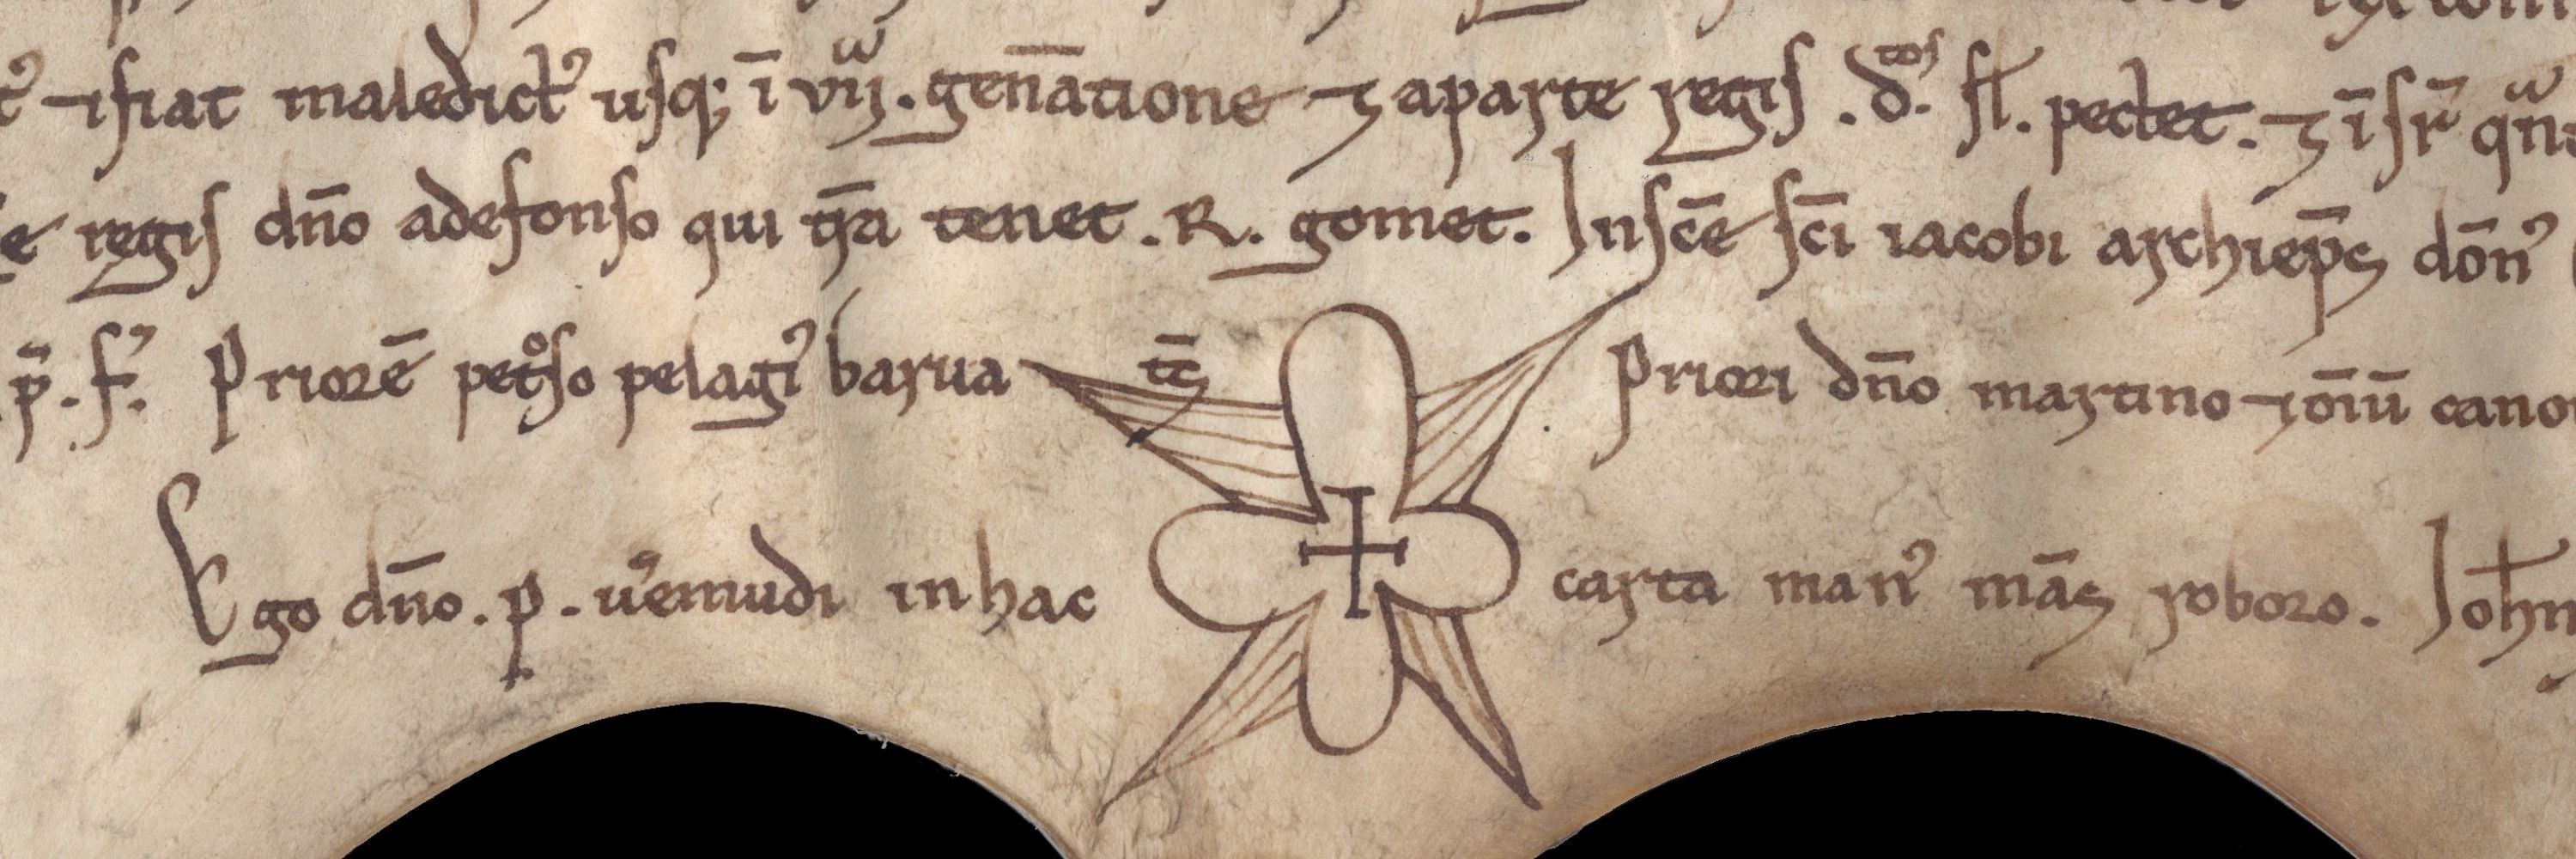 ⁊ fiat maledict᾽ usq; ī vijᵃ. gen̄atione ⁊ a parte regis .dᶜᵒˢ. sƚ. pectet. ⁊ ī
regis dn̄o adefonso qui tenet .R. gomet. In sc̄e sc̄i iacobi archiep̄s dōn᾽
p̄. f᾽. Priorē petͦso pelagi᾽ barua t̄s Priori dn̄o martino ⁊ ōiū
Ego dn̄o .p. u᾽emudi in hac carta man᾽ mās roboro. Joh̄n